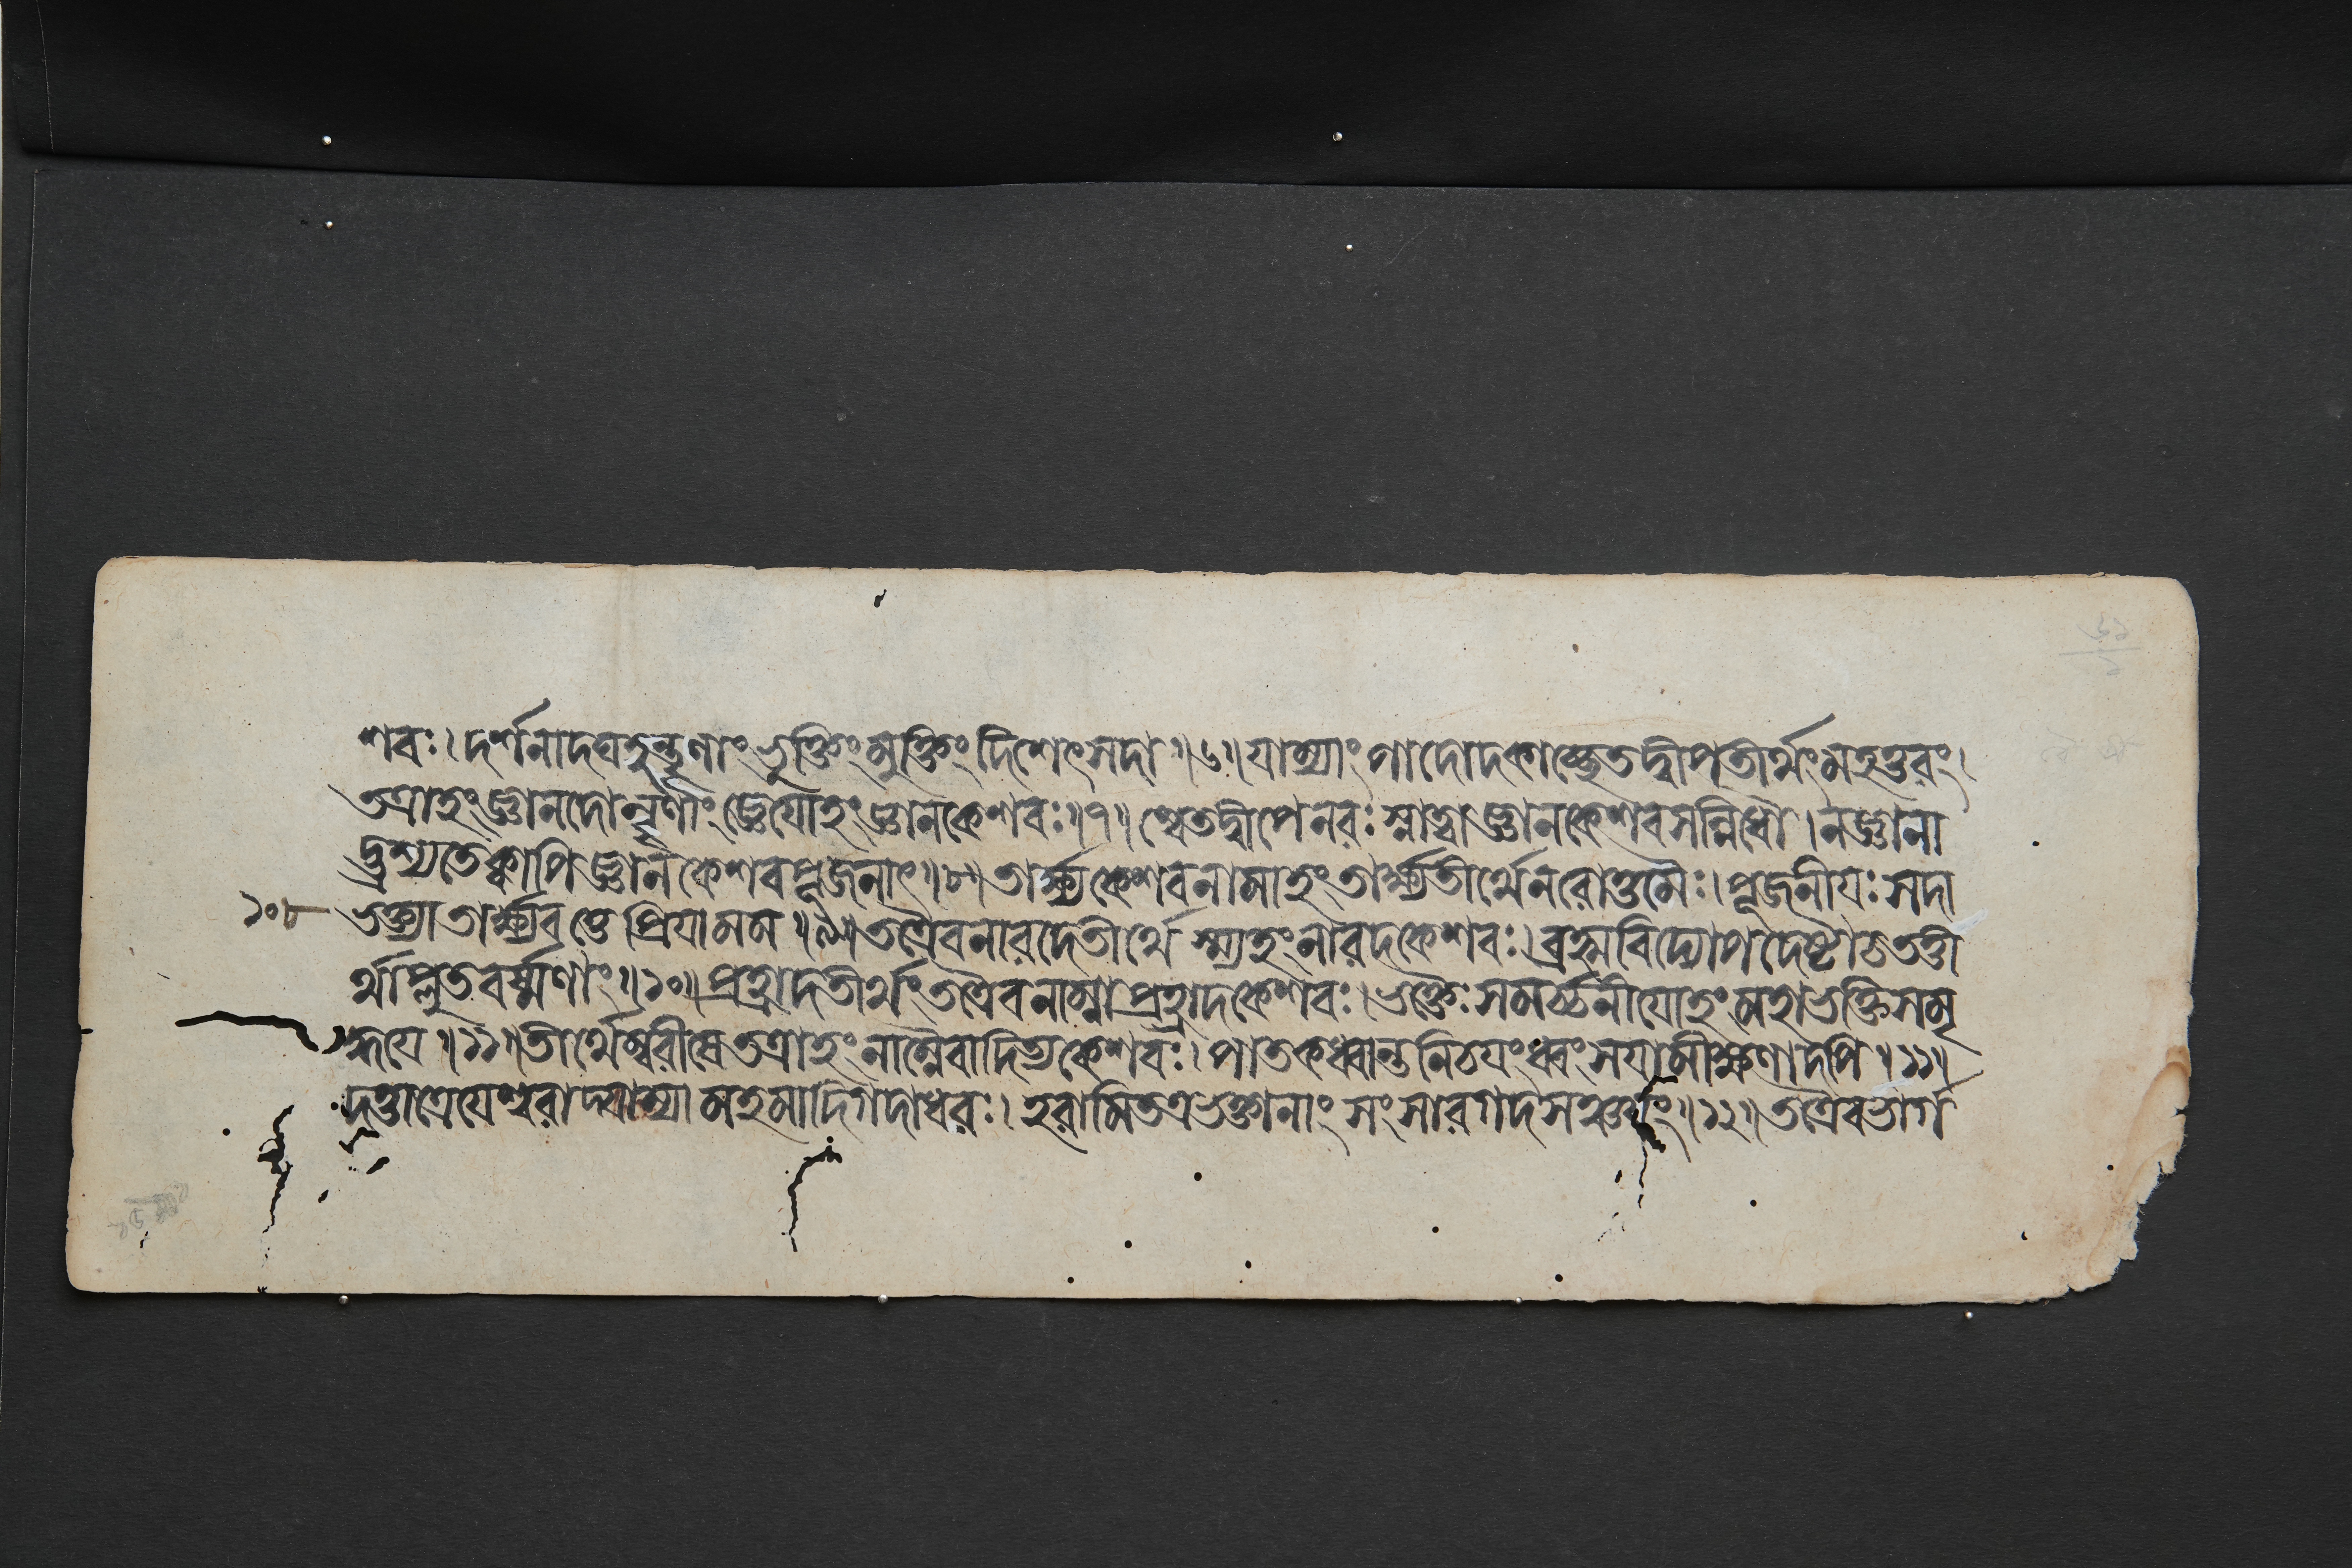 শবঃ। দর্শনাদঘহন্নৄণাং ভুক্তিং মুক্তিং দিশেৎ সদা ॥৬॥ যাম্যাং পাদোদকাচ্ছ্বেতদ্বীপতীর্থং মহত্তরং।
তত্রাহং জ্ঞানদো নৄণাং জ্ঞেয়োহং জ্ঞানকেশবঃ॥৭॥ শ্বেতদ্বীপে নরঃ স্নাত্বা জ্ঞানকেশবসন্নিধৌ। ন জ্ঞানা
দ্ভ্রশ্যতে ক্বাপি জ্ঞানকেশবপূজনাৎ॥৮॥ তার্ক্ষ্যকেশবনামাহং তার্ক্ষ্যতীর্থে নরোত্তমৈঃ। পূজনীয়ঃ সদা
১০৮ ভক্ত্যা তার্ক্ষ্যবত্তে প্রিয়া মম ॥৯॥ তত্রৈব নারদে তীর্থে স্ম্যহং নারদকেশবঃ। ব্রহ্মবিদ্যোপদেষ্টা চ তত্তী
র্থাপ্লুতবর্ষ্মণাং॥১০॥ প্রহ্লাদতীর্থং তত্রৈব নাম্না প্রহ্লাদকেশবঃ। ভক্তৈঃ সমর্চ্চনীয়োহং মহাভক্তিসমৃ
দ্ধয়ে ॥১১॥ তীর্থেম্বরীষে তত্রাহং নাম্নৈবাদিত্যকেশবঃ। পাতকধ্বান্তনিচয়ং ধ্বংসয়ামীক্ষণাদপি ॥১১॥
দত্তাত্রেয়েশ্বরাদ্যাম্যামহমাদিগদাধরঃ। হরামি তত্র ভক্তানাং সংসারগদসঞ্চয়ং॥১২॥ তত্রৈব ভার্গ